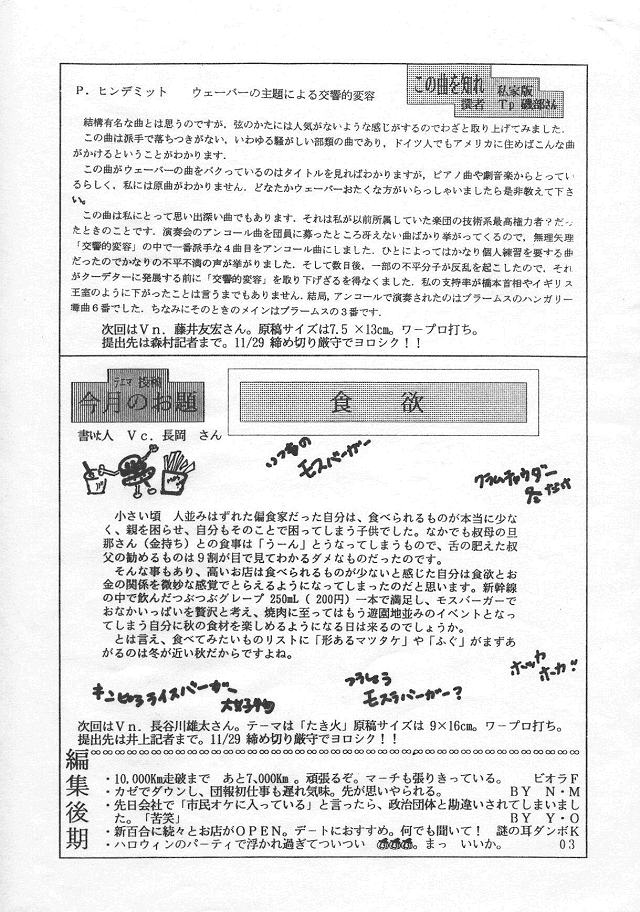 この曲を知れ 私家版
P．ヒンデミット　　ウェーバーの主題による交響的変容
撰者　Tp 磯部さん
結構有名な曲とは思うのですが，弦のかたには人気がないような感じがするのでわざと取り上げてみました．
この曲は派手で落ちつきがない，いわゆる騒がしい部類の曲であり，ドイツ人でもアメリカに住めばこんな曲
がかけるということがわかります．
この曲がウェーバーの曲をパクっているのはタイトルを見ればわかりますが，ピアノ曲や劇音楽からとってい
るらしく，私には原曲がわかりません．どなたかウェーバーおたくな方がいらっしゃいましたら是非教えて下さ
い。
この曲は私にとって思い出深い曲でもあります．それは私が以前所属していた楽団の技術系最高権力者？だっ
たときのことです．演奏会のアンコール曲を団員に募ったところ冴えない曲ばかり挙がってくるので，無理矢理
「交響的変容」の中で一番派手な４曲目をアンコール曲にしました．ひとによってはかなり個人練習を要する曲
だったのでかなりの不平不満の声が挙がりました．そして数日後，一部の不平分子が反乱を起こしたので，それ
がクーデターに発展する前に「交響的変容」を取り下げざるを得なくました．私の支持率が橋本首相やイギリス
王室のように下がったことは言うまでもありません．結局，アンコールで演奏されたのはブラームスのハンガリー
舞曲６番でした．ちなみにそのときのメインはブラームスの３番です．
次回はＶｎ．藤井友宏さん。原稿サイズは7.5 ×13cm。ワープロ打ち。
提出先は森村記者まで。11/29 締め切り厳守でヨロシク！！
テエマ 投稿
今月のお題
食　欲
書いた人　Ｖｃ．長岡　さん
いつもの
モスバーガー
クラムチャウダー
冬だけ
小さい頃　人並みはずれた偏食家だった自分は、食べられるものが本当に少な
く、親を困らせ、自分もそのことで困ってしまう子供でした。なかでも叔母の旦
那さん（金持ち）との食事は「うーん」とうなってしまうもので、舌の肥えた叔
父の勧めるものは９割が目で見てわかるダメなものだったのです。
そんな事もあり、高いお店は食べられるものが少ないと感じた自分は食欲とお
金の関係を微妙な感覚でとらえるようになってしまったのだと思います。新幹線
の中で飲んだつぶつぶグレープ 250mL（ 200円）一本で満足し、モスバーガーで
おなかいっぱいを贅沢と考え、焼肉に至ってはもう遊園地並みのイベントとなっ
てしまう自分に秋の食材を楽しめるようになる日は来るのでしょうか。
とは言え、食べてみたいものリストに「形あるマツタケ」や「ふぐ」がまずあ
がるのは冬が近い秋だからですよね。
ホッカ
ホーカ！
キンピラライスバーガー
大好物
つうしょう
モスラバーガー？
次回はＶｎ．長谷川雄太さん。テーマは「たき火」原稿サイズは 9×16cm。ワープロ打ち。
提出先は井上記者まで。11/29 締め切り厳守でヨロシク！！
編集後期
・10,000Km走破まで　あと7,000Km 。頑張るぞ。マーチも張りきっている。　ビオラＦ
・カゼでダウンし、団報初仕事も遅れ気味。先が思いやられる。　ＢＹ　Ｎ・Ｍ
・先日会社で「市民オケに入っている」と言ったら、政治団体と勘違いされてしまいまし
た。「苦笑」　ＢＹ　Ｙ・Ｏ
・新百合に続々とお店がＯＰＥＮ。デートにおすすめ。何でも聞いて！　謎の耳ダンボＫ
・ハロウィンのパーティで浮かれ過ぎてついつい　。まっ　いいか。　０３